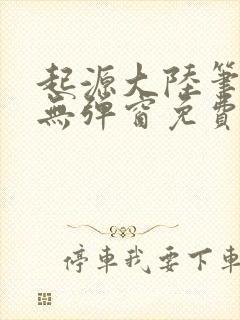 起源大陸筆
無彈窗免費
停車我要下車